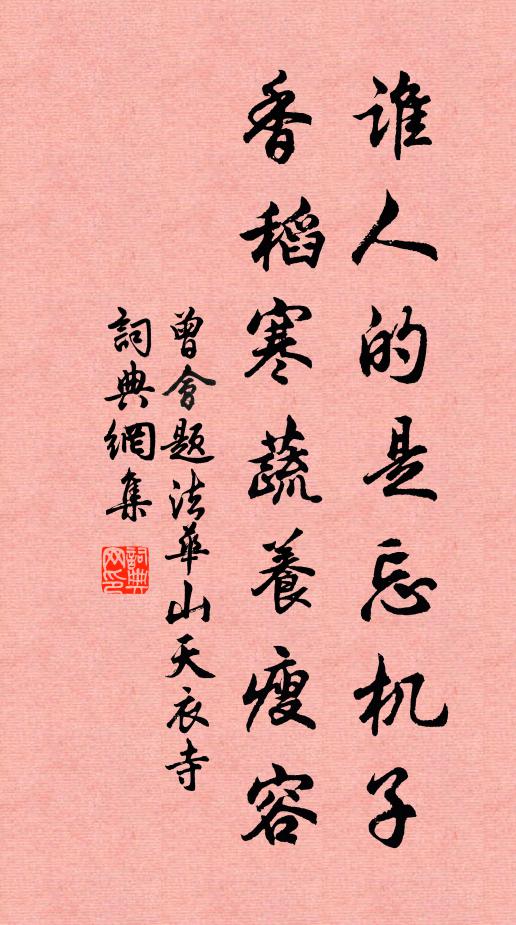 誰人的是忘机子
香稻寒蔬養瘦容
曾會題法華山天衣寺
詞典網集
詞典网印